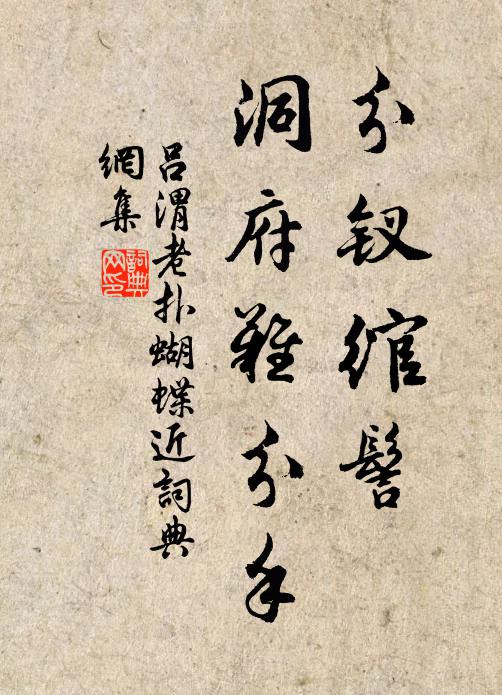 分钗绾髻
洞府难分手
吕渭老扑蝴蝶近詞典
網集
詞典
网印